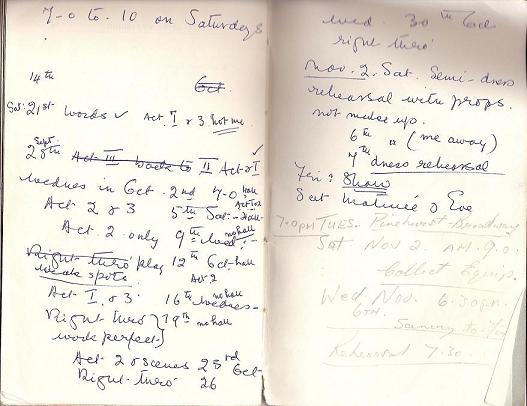 7-0 to 10 on Saturdays
14th
Oct.
Sat. 21st Words ✓ Act I & 3 not me.
Sept.
28th Act III back to II Act I ✓
Wednes in Oct. 2nd 7-0 hall
Act 2 & 3 5th Sat - Hall
Act 1 & 2
Act 2 only 9th Wed: - no hall
Right thro' play 12th Oct - hall
weak spots Act 2
Act I & 3 16th Wednes - no hall
Right thro } 19th no hall
work perfect }
Act 2 & scenes 23rd Oct -
Right - thro' 26
Wed. 30th Oct
right thro'
Nov. 2. Sat. Semi-dress
rehearsal with props.
not make up.
6th " (me away)
7th dress rehearsal
Fri: Show
Sat Matinée & Eve
7.0pm TUES. Broadway
Sat Nov 2 AM. 9.0.
Collect Equip.
Wed. Nov. 6.30pm.
6TH.
Rehearsal 7.30.